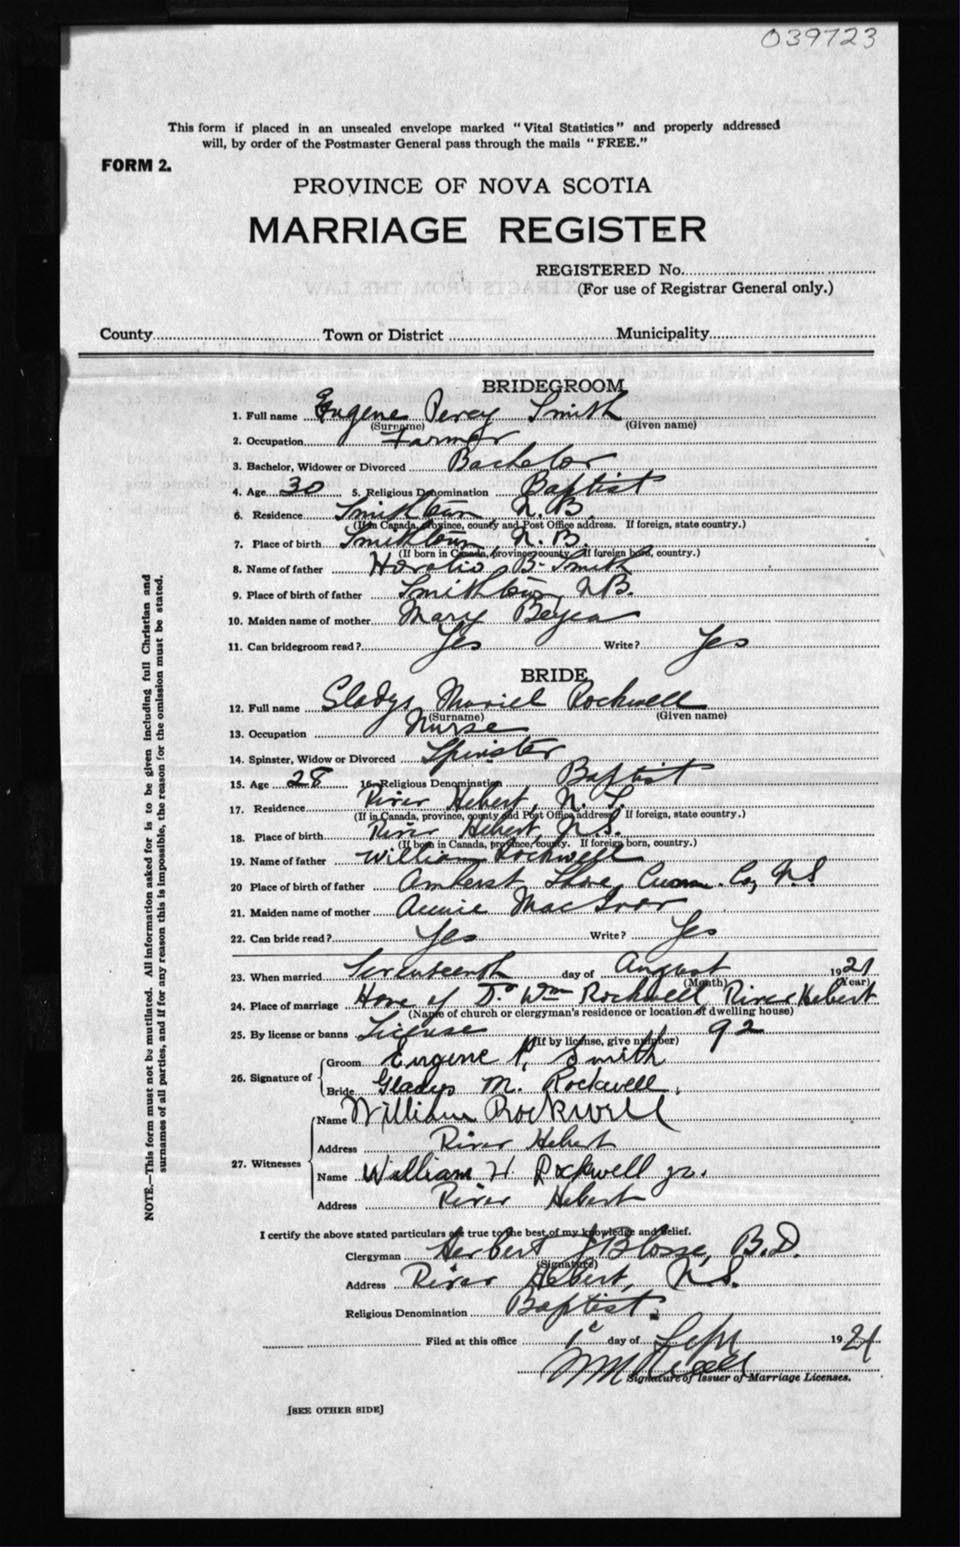 039723
This form if placed in an unsealed envelope marked "Vital Statistics" and properly addressed
will, by order of the Postmaster General pass through the mails "FREE."
FORM 2.
PROVINCE OF NOVA SCOTIA
MARRIAGE REGISTER
REGISTERED No.
(For use of Registrar General only.)
County Town or District Municipality
BRIDEGROOM
1. Full name Eugene Percy Smith
(Surname) (Given name)
2. Occupation Farmer
3. Bachelor, Widower or Divorced Bachelor
4. Age 30 5. Religious Denomination Baptist
6. Residence Smithtown N.B.
(If in Canada, province, county and Post Office address. If foreign, state country.)
7. Place of birth Smithtown, N.B.
(If born in Canada, province, county. If foreign born, country.)
8. Name of father Horatio B. Smith
9. Place of birth of father Smithtown, N.B.
10. Maiden name of mother Mary Beyea
11. Can bridegroom read? Yes Write? Yes
BRIDE
12. Full name Gladys Muriel Rockwell
(Surname) (Given name)
13. Occupation Nurse
14. Spinster, Widow or Divorced Spinster
15. Age 28 16. Religious Denomination Baptist
17. Residence River Hebert, N.S.
(If in Canada, province, county and Post Office address. If foreign, state country.)
18. Place of birth River Hebert, N.S.
(If born in Canada, province, county. If foreign born, country.)
19. Name of father William Rockwell
20 Place of birth of father Amherst Shore, Cum. Co, N.S
21. Maiden name of mother Annie MacIvor
22. Can bride read? Yes Write? Yes
23. When married Seventeenth day of August 1921
(Month) (Year)
24. Place of marriage Home of Wm Rockwell, River Hebert
(Name of church or clergyman's residence or location of dwelling house)
25. By license or banns License 92
(If by license, give number)
26. Signature of Groom Eugene P. Smith
Bride Gladys M. Rockwell.
27. Witnesses Name William Rockwell
Address River Hebert
Name William H Rockwell jr.
Address River Hebert
I certify the above stated particulars are true to the best of my knowledge and belief.
Clergyman Herbert J Blosse, B.D.
(Signature)
Address River Hebert, N.S.
Religious Denomination Baptist.
Filed at this office 1st day of Sept 1921
Signature of Issuer of Marriage Licenses.
[SEE OTHER SIDE]
NOTE.—This form must not be mutilated. All information asked for is to be given including full Christian and
surnames of all parties, and if for any reason this is impossible, the reason for the omission must be stated.